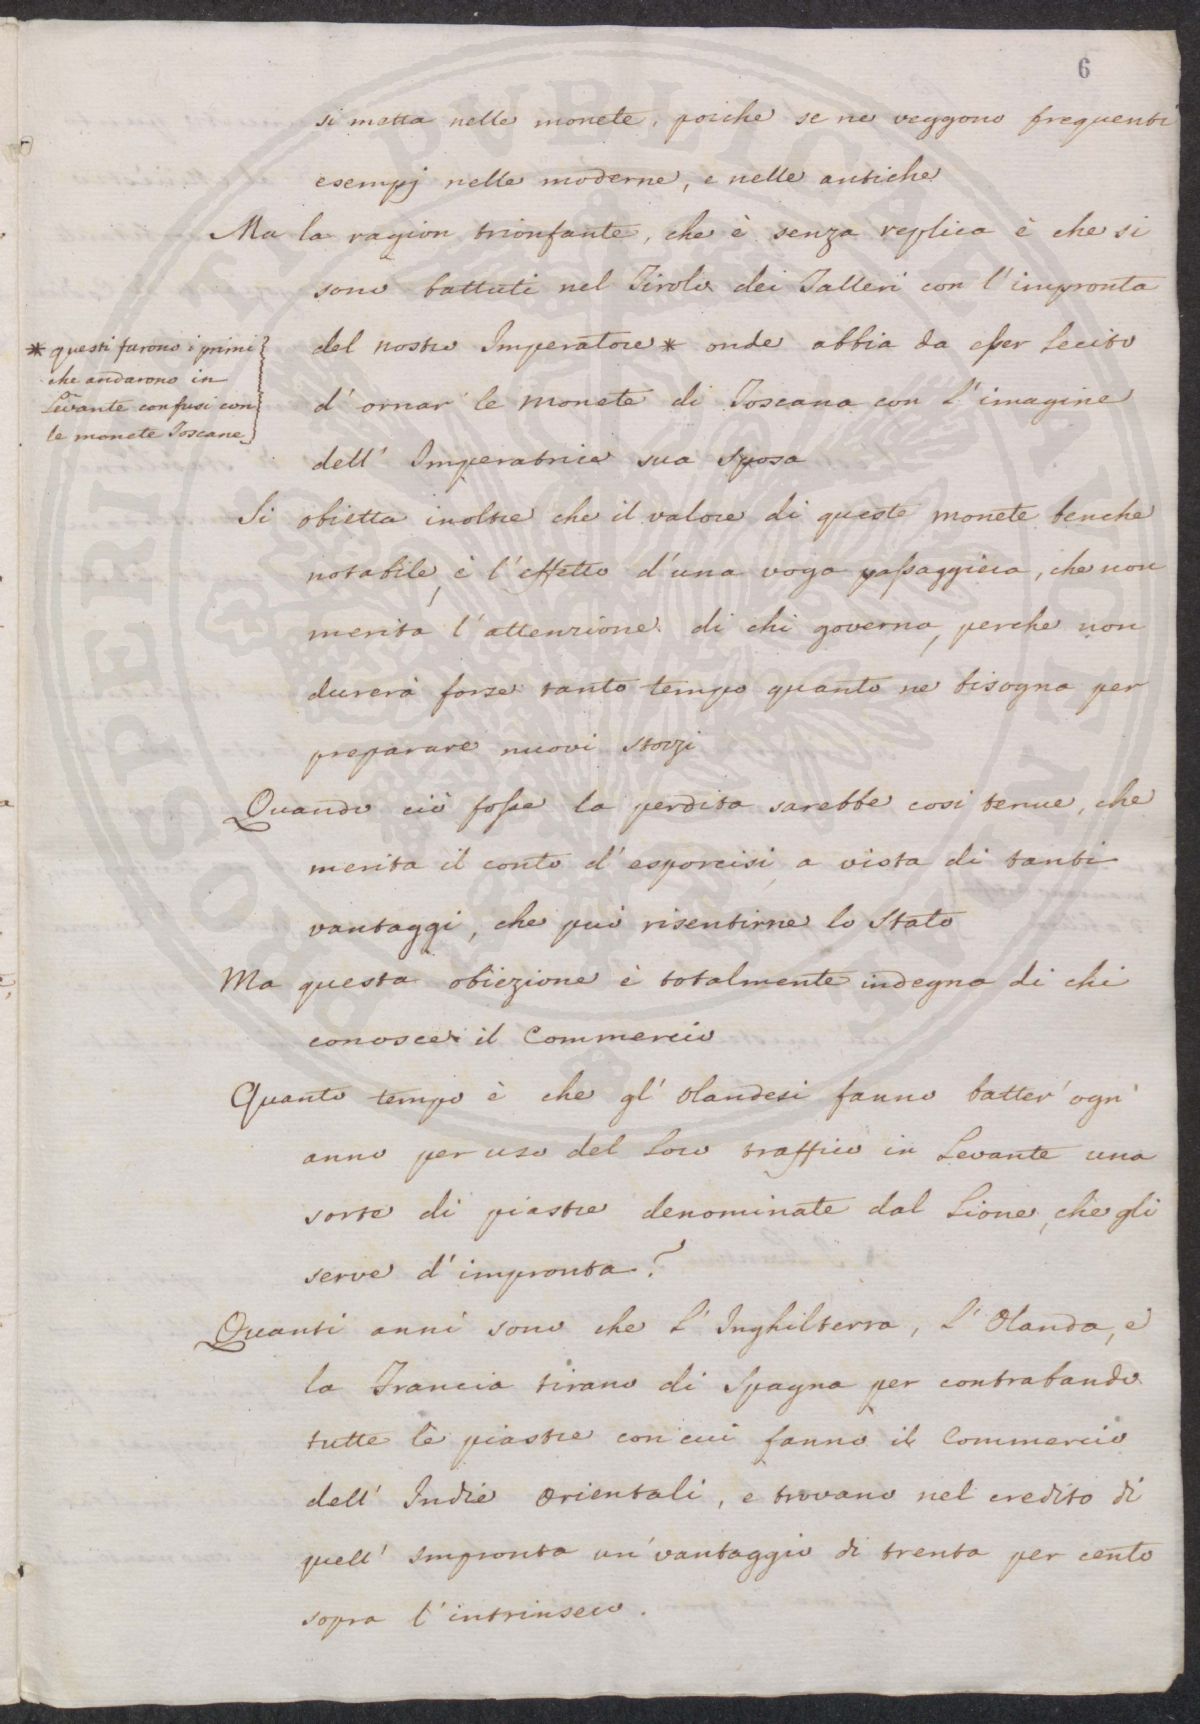 6
si metta nelle monete, poiche se ne veggono frequenti
esempj nelle moderne, e nelle antiche
Ma la ragion trionfante, che è senza replica è che si
sono battuti nel Tirolo dei Talleri con l'impronta
del nostro Imperatore * onde abbia da esser Lecito
d'ornar le monete di Toscana con L'imagine
dell' Imperatrice sua Sposa
* questi furono i primi
che andarono in
Levante confusi con
le monete Toscane
Si obietta inoltre che il valore di queste monete benche
notabile, è l'effetto d'una voga passaggiera, che non
merita l'attenzione di chi governa, perche non
durerà forse tanto tempo quanto ne bisogna per
preparare nuovi storzi
Quando ciò fosse la perdita sarebbe cosi tenue, che
merita il conto d'esporcisi a vista di tanti
vantaggi, che può risentirne lo Stato
Ma questa obiezione è totalmente indegna di chi
conosce il Commercio
Quanto tempo è che gl' Olandesi fanno batter' ogn'
anno per uso del Loro traffico in Levante una
sorte di piastre denominate dal Lione, che gli
serve d'impronta?
Quanti anni sono che L'Inghilterra, L'Olanda, e
la Francia tirano di Spagna per contrabando
tutte le piastre con cui fanno il Commercio
dell' Indie Orientali, e trovano nel credito di
quell' Impronta un'vantaggio di trenta per cento
sopra l'intrinseco.
PROSPERITATI PUBLICAE AUGENDAE